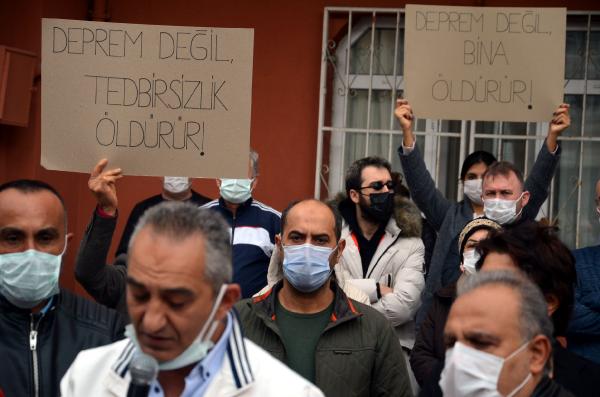 DEPREM DEĞİL,
TEDBIRSIZLIK
ÖLDÜRÜR!
DEPREM DEĞİL,
BİNA
ÖLDÜRÜR!